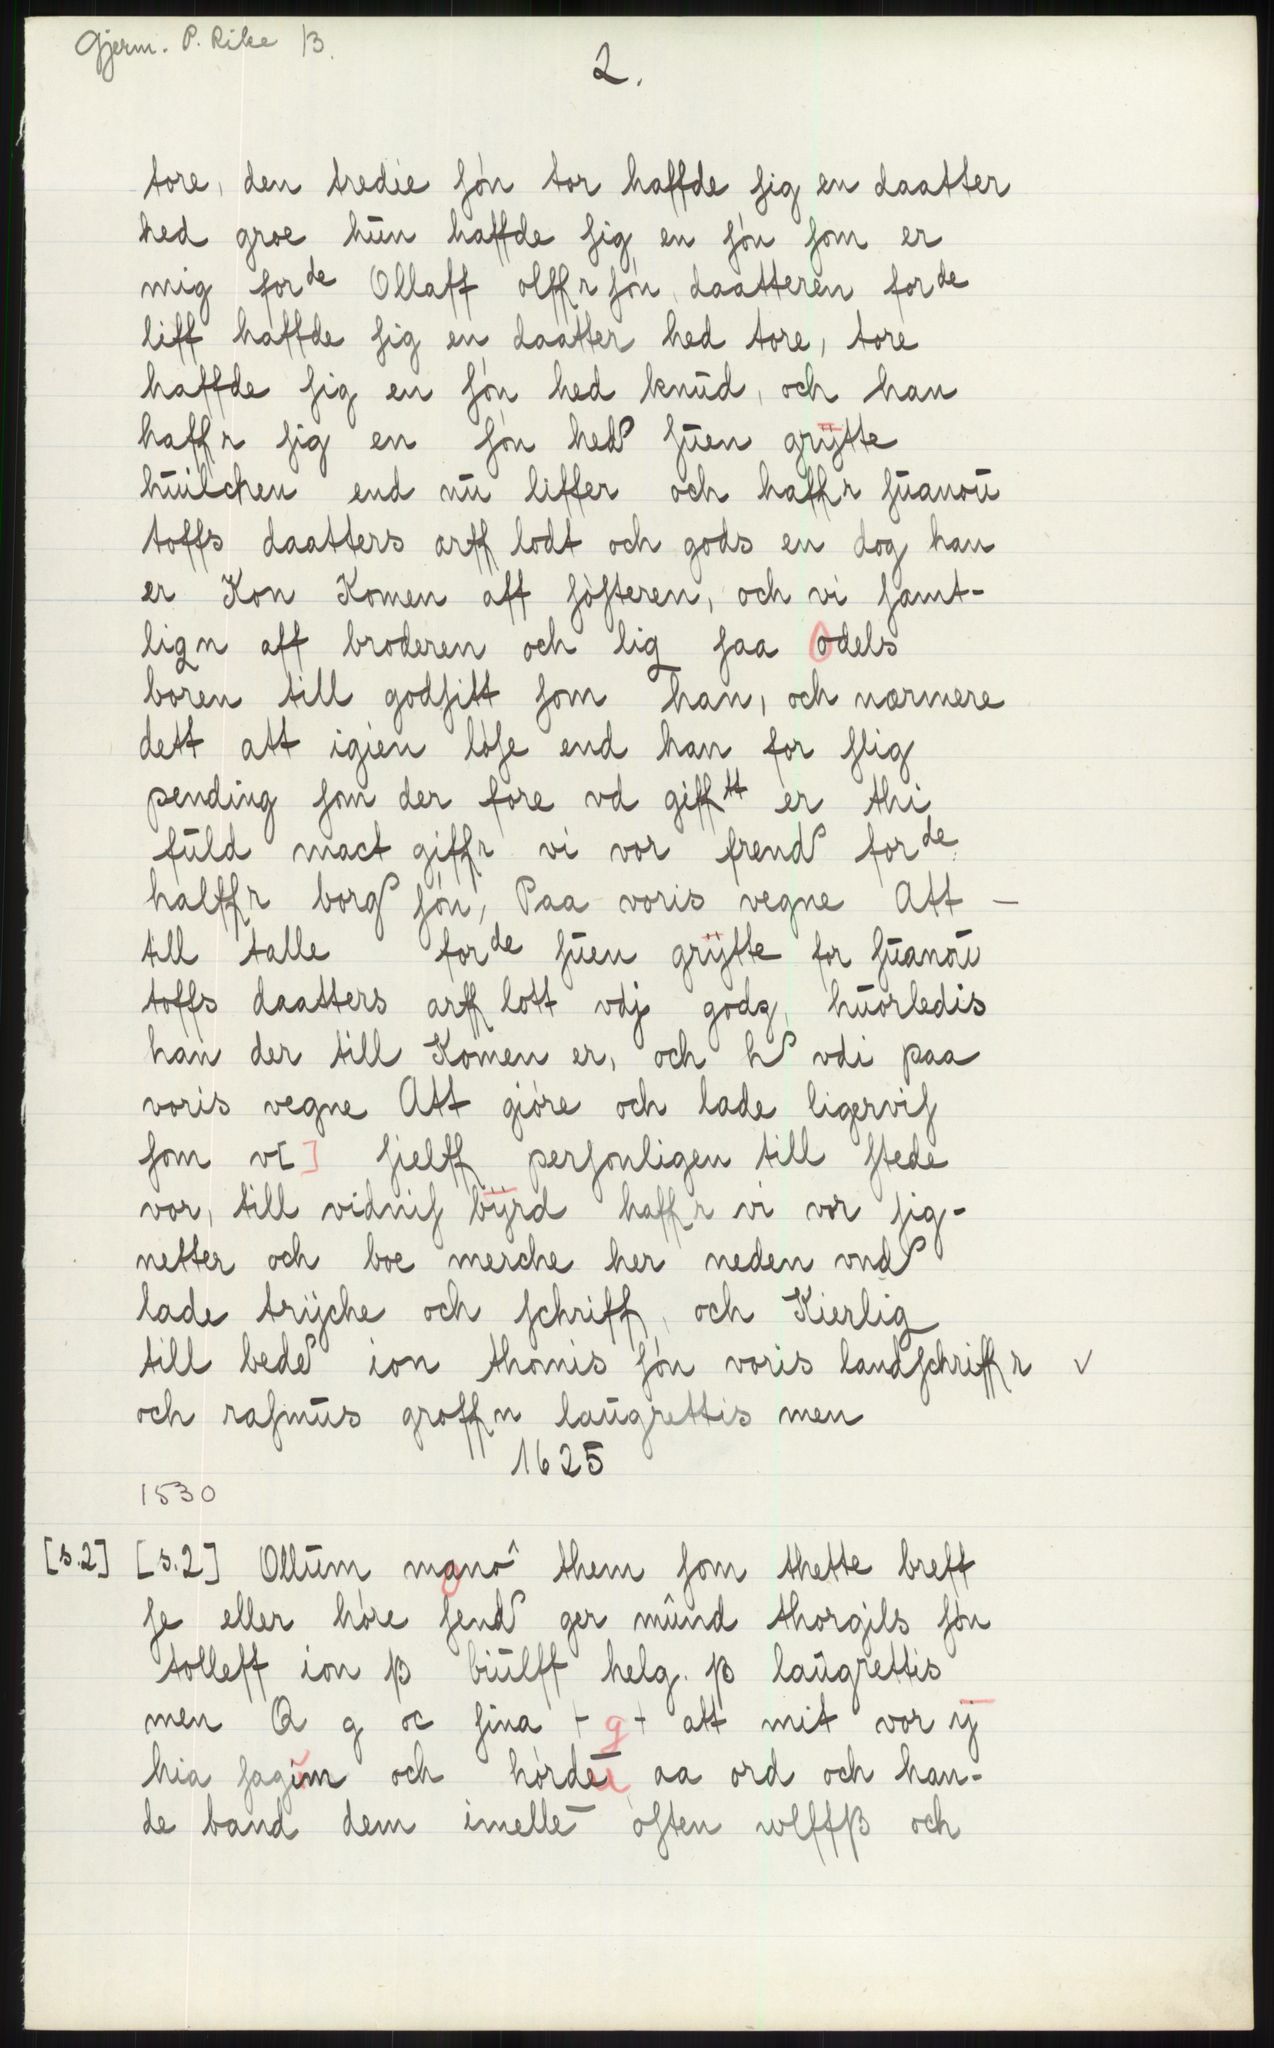 Gjerm. P. Rike /3.
2.
tore, den tredie ſón tor haffde ſig en daatter
hed groe hūn haffde ſig en ſón ſom er
mig forde Ollaff olffr ſón, daatteren forde
liff haffde ſig en daatter hed tore, tore
haffde ſig en ſón hed knūd, och han
haffr ſig en ſón hed ſūen grÿtte
hūilchen end nū liffer och haffr ſūanoū
toffs daatters arff lodt och gods en dog han
er Kon Komen aff ſóſteren, och vi ſamt-
lign aff broderen och lig ſaa odels
boren till godſitt ſom han, och nærmere
dett att igien lóſe end han for ſlig
pending ſom der fore vd gifftt er thi
fūld mact giffr vi vor frend forde
halffr borg ſón, Paa voris vegne Att —
till talle forde ſūen grÿtte for ſūanoū
toffs daatters arff lott vdj godz, hūorledis
han der till Komen er, och h vdi paa
voris vegne Att gióre och lade ligerviſ
ſom v[ ] ſielff perſonligen till ſtede
vor, till vidniſ bÿrd haffr vi vor ſig-
netter och boe merche her neden vnd
lade trÿche och ſchriff, och Kierlig
till bede ion thomis ſón voris landſchriffr √
och raſmūs groffn laūgrettis men
1625
1530
[s.2] [s.2] Ollūm mano^ them ſom thette breff
ſe eller hóre ſend ger mûnd thorgils ſón
tolleff ion ꞵ biūlff helg. ꞵ laūgrettis
men Q g oc ſina + g + att mit vor ij
hia ſagūm och hórde aa ord och han-
de band dem imelle‾ óſten wlffꞵ och